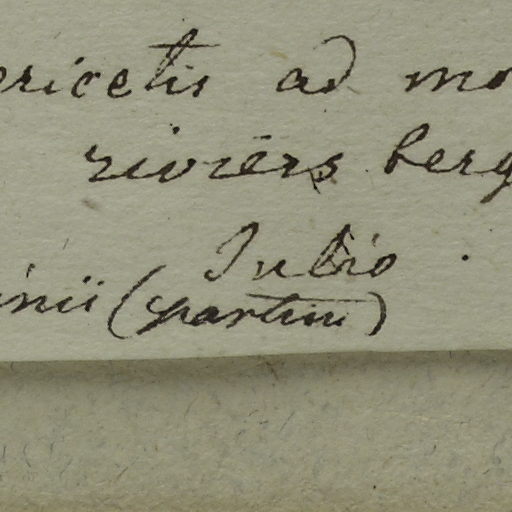 ericetis ad mo
riviers berg
Julio.
inii (partim)